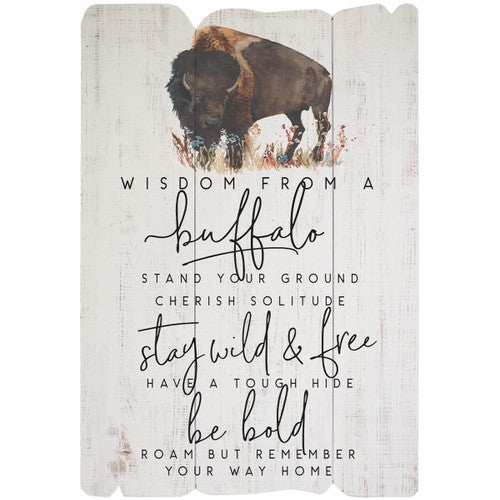 WISDOM FROM A
buffalo
STAND YOUR GROUND
CHERISH SOLITUDE
stay wild & free
HAVE A TOUGH HIDE
be bold
ROAM BUT REMEMBER
YOUR WAY HOME